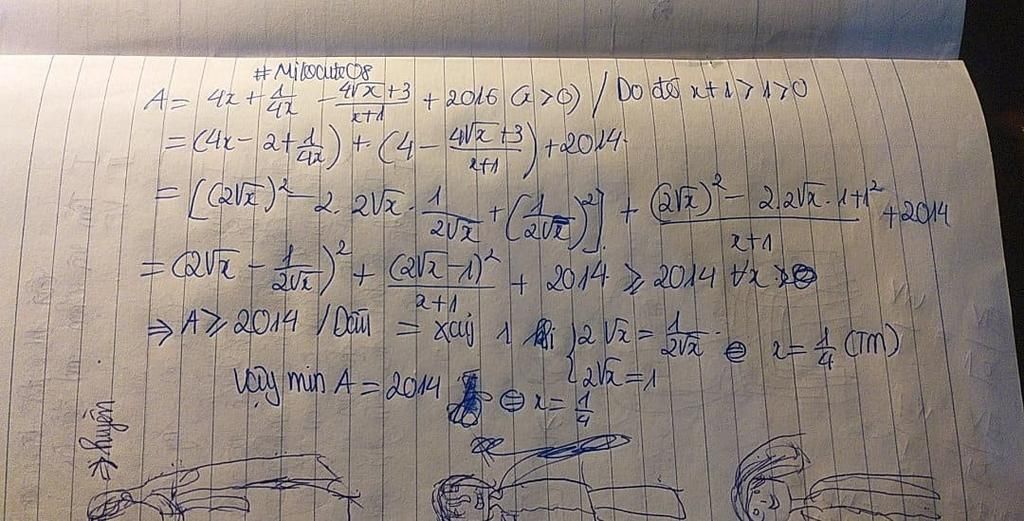 #Milocute08
A = 4x + 1/4x - (4√x+3)/(x+1) + 2016 (x>0) / Do đó x+1>1>0
= (4x - 2 + 1/4x) + (4 - (4√x+3)/(x+1)) + 2014.
= [(2√x)² - 2. 2√x . 1/(2√x) + (1/(2√x))²] + ((2√x)² - 2.2√x.1+1²)/(x+1) + 2014
= (2√x - 1/(2√x))² + (2√x-1)²/(x+1) + 2014 ≥ 2014 ∀x >0
⇒ A ≥ 2014 / Dấu = xảy { 2√x = 1/(2√x) ⇔ x = 1/4 (TM)
2√x = 1
Vậy min A = 2014 ⇔ x = 1/4
huyền